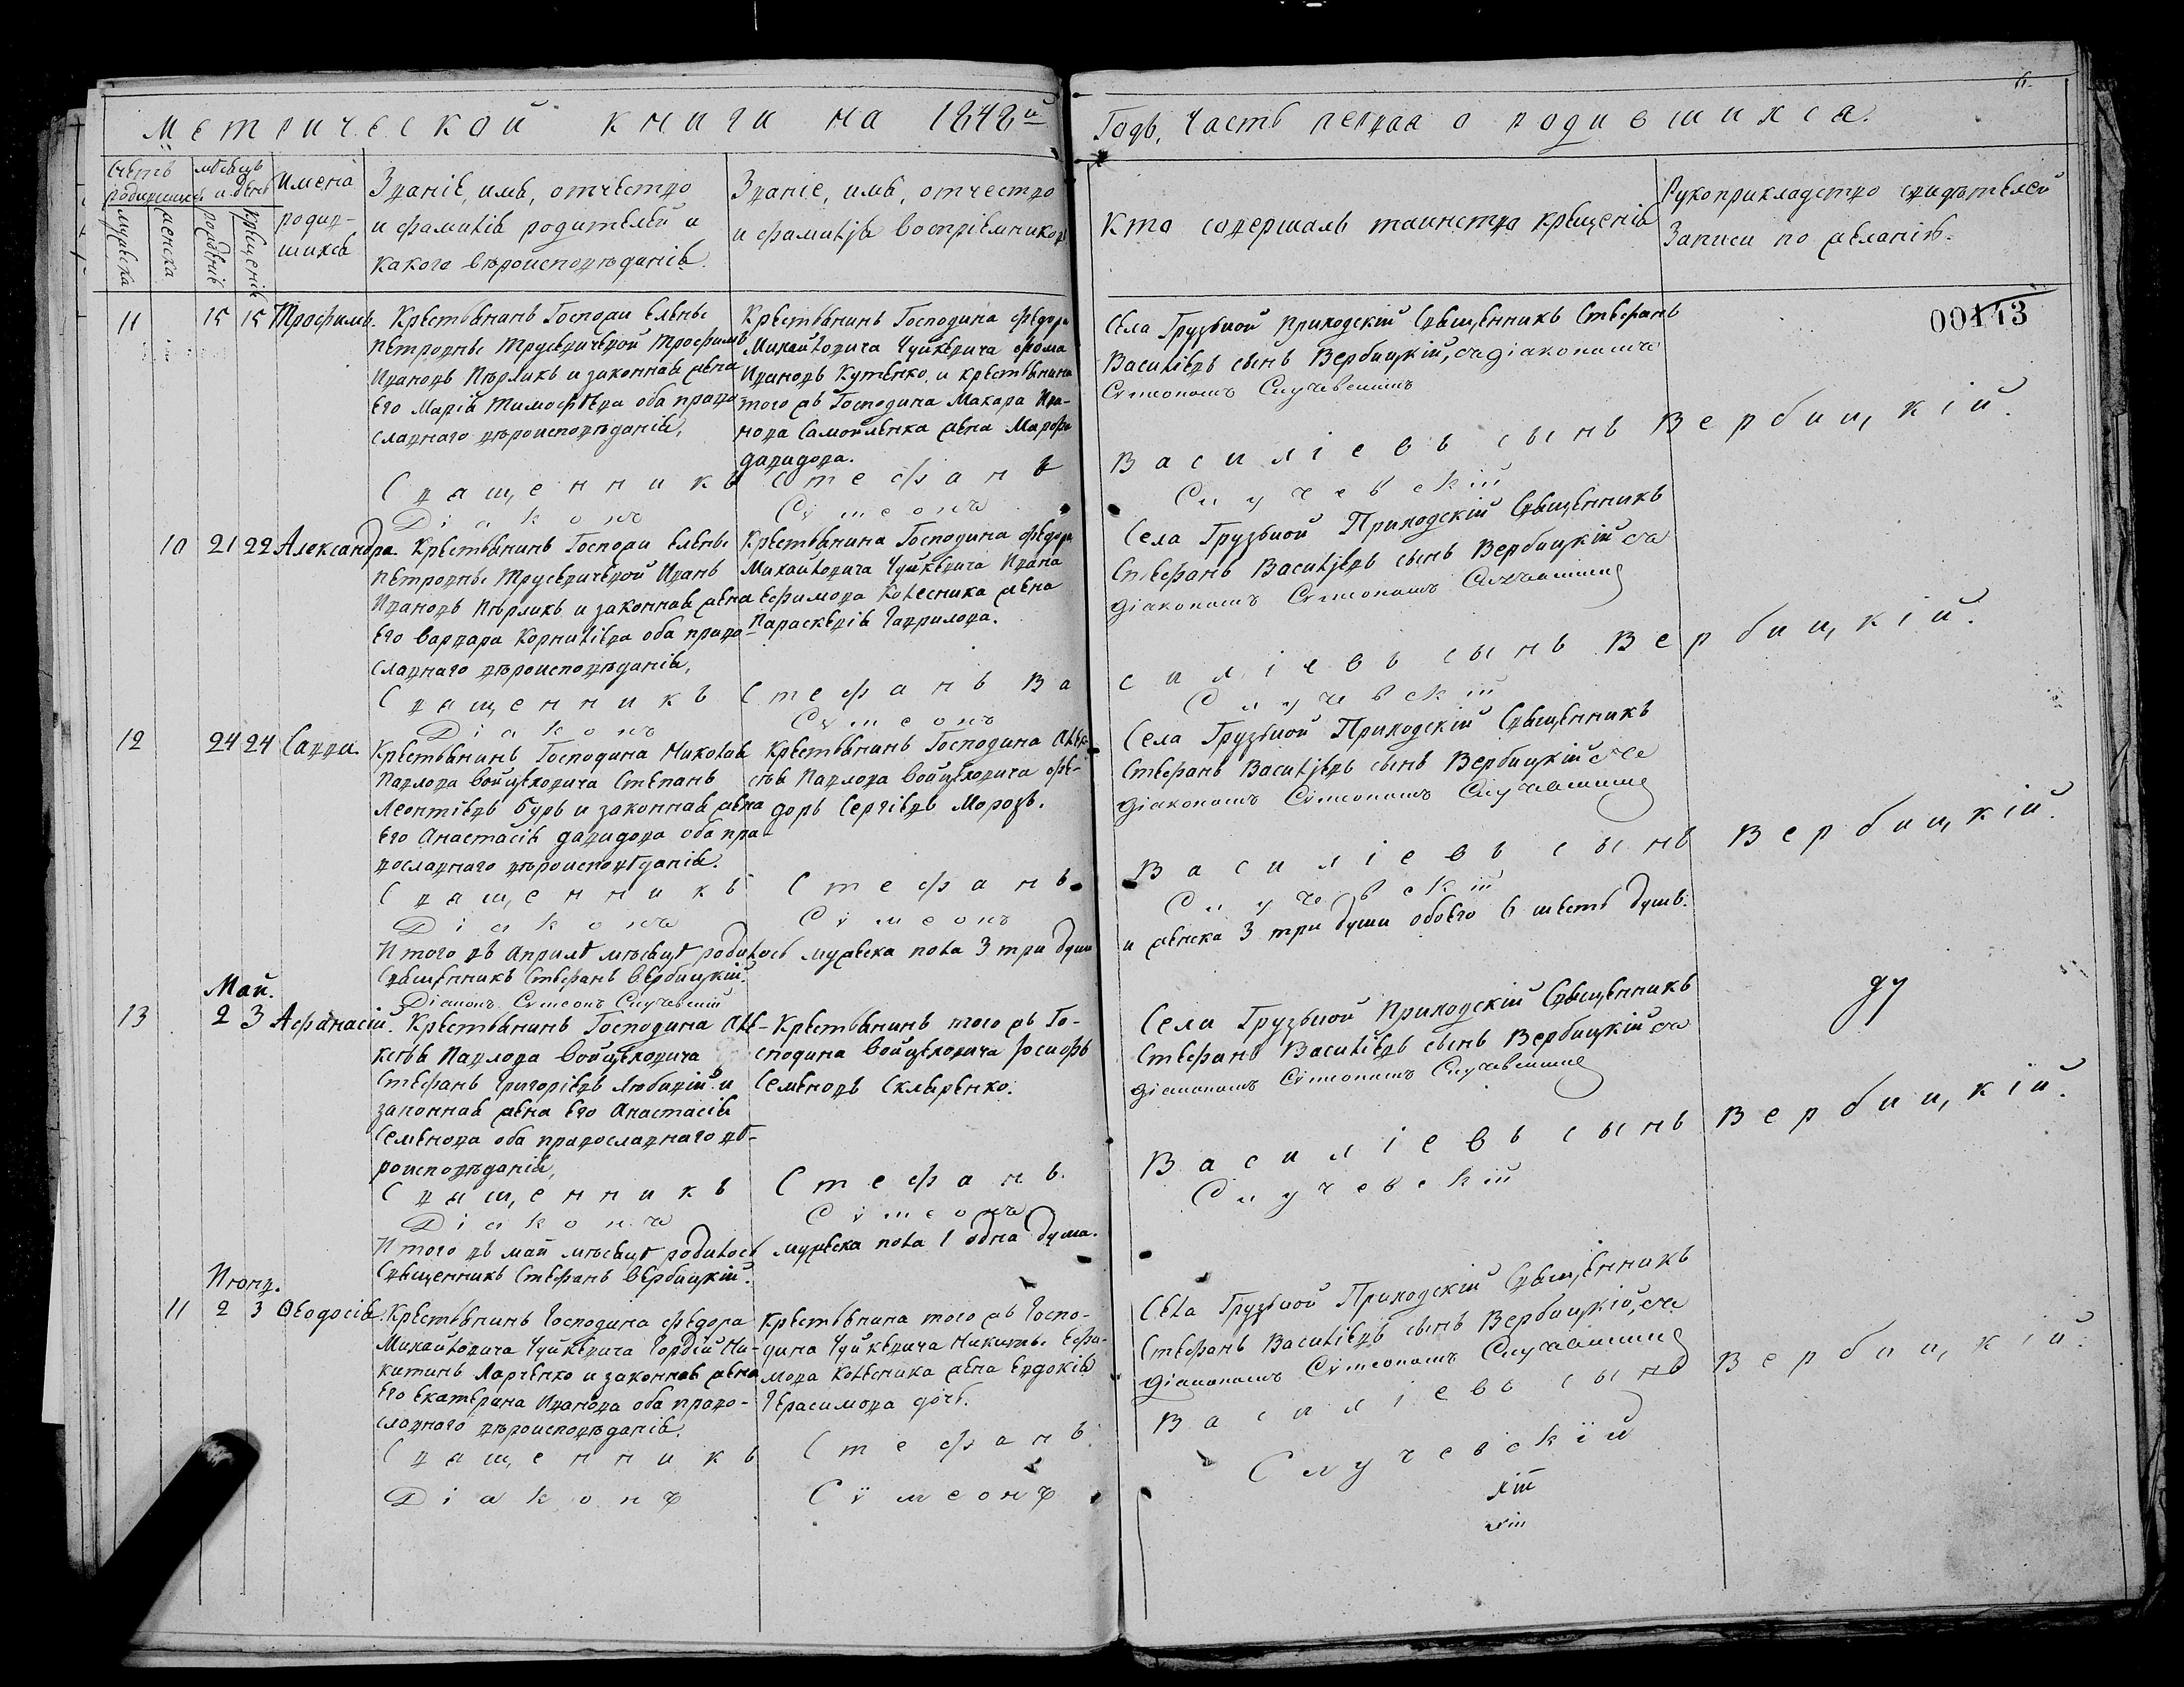 Метрической книги на 1848й
Годъ, Часть первая о родившихся.
Счетъ родившихся
мужеска
женска
Мѣсяцъ и день
рожденіе
крещеніе
Имена
родив-
шихся
Званіе, имя, отчество
и фамилія родителей и
какого вѣроисповѣданія.
Званіе, имя, отчество
и фамилія восприемниковъ
Кто совершалъ таинство крещенія
Рукоприкладство свидѣтелей
Записи по желанію.
00113
11 15 15 Трофимъ.
Крестьянинъ Госпожи Елены
Петровны Трусевичевой Трофимъ
Ивановъ Пѣрликъ и законная жена
его Марія Тимофѣева оба право
славнаго вѣроисповѣданія,
Крестьянинъ Господина Федора
Михайловича Чуйкевича Фома
Ивановъ Кутенко, и крестьянина
того жъ Господина Макара Ива-
нова Самойленка жена Марфа
Давидова.
Села Грузьной приходскій Священникъ Стефанъ
Василіевъ сынъ Вербицкій, съ діакономъ
Сѵмеономъ Случевскимъ
Священникъ Стефанъ Василіевъ сынъ Вербицкій.
Діаконъ Сѵмеонъ Случевскій
10 21 22 Александра.
Крестьянинъ Госпожи Елены
Петровны Трусевичевой Иванъ
Ивановъ Пѣрликъ и законная жена
его Варвара Корниліева оба право
славнаго вѣроисповѣданія,
Крестьянина Господина Федора
Михайловича Чуйкевича Ивана
Ефимова Колесника жена
Параскевія Гаврилова.
Села Грузьной Приходскій Священникъ
Стефанъ Василіевъ сынъ Вербицкій съ
діакономъ Сѵмеономъ Случевскимъ
Священникъ Стефанъ Василіевъ сынъ Вербицкій.
Діаконъ Сѵмеонъ Случевскій
12 24 24 Савва.
Крестьянинъ Господина Николая
Павлова Войцеховича Степанъ
Леонтіевъ Буръ и законная жена
его Анастасія Давидова оба пра-
вославнаго вѣроисповѣданія.
Крестьянинъ Господина Алек-
сѣя Павлова Войцеховича Фе-
доръ Сергіевъ Морозъ.
Села Грузьной Приходскій Священникъ
Стефанъ Василіевъ сынъ Вербицкій съ
діакономъ Сѵмеономъ Случевскимъ
Священникъ Стефанъ Василіевъ сынъ Вербицкій.
Діаконъ Сѵмеонъ Случевскій
Итого въ Априлѣ мѣсяцѣ родилось мужеска пола 3 три души
и женска 3 три души обоего 6 шесть душъ.
Священникъ Стефанъ Вербицкій.
Діаконъ Сѵмеонъ Случевскій
Май.
13 2 3 Афанасій.
Крестьянинъ Господина Але-
ксѣя Павлова Войцеховича
Стефанъ Григоріевъ Любивій и
законная жена его Анастасія
Семенова оба православнаго вѣ-
роисповѣданія,
Крестьянинъ того жъ Го-
сподина Войцеховича Іосифъ
Семеновъ Скляренко.
Села Грузьной Приходскій Священникъ
Стефанъ Василіевъ сынъ Вербицкій съ
діакономъ Сѵмеономъ Случевскимъ
Священникъ Стефанъ. Василіевъ сынъ Вербицкій.
Діаконъ Сѵмеонъ Случевскій
Итого въ май мѣсяцѣ родилось мужеска пола 1 одна душа.
Священникъ Стефанъ Вербицкій.
Июнь.
11 2 3 Ѳеодосія.
Крестьянинъ Господина Федора
Михайловича Чуйкевича Гордій Ни-
китинъ Харченко и законная жена
его Екатерина Иванова оба право-
славного вѣроисповѣданія.
Крестьянина того жъ Госпо-
дина Чуйкевича Никиты Ефи-
мова Колесника жена Евдокія
Герасимова дочь.
Села Грузьной Приходскій Священникъ
Стефанъ Василіевъ сынъ Вербицкій, съ
діакономъ Сѵмеономъ Случевскимъ
Священникъ Стефанъ Василіевъ сынъ Вербицкій.
Діаконъ Сѵмеонъ Случевскій